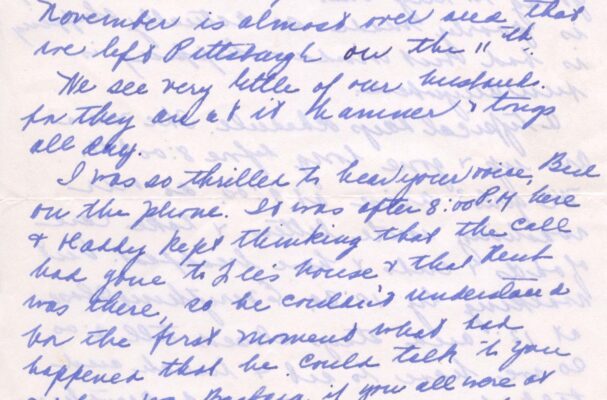 November is almost over and that
we left Pittsburgh on the 11th.
We see very little of our husbands
for they are at it hammer & tongs
all day.
I was so thrilled to hear your voice, Bee
on the phone. It was after 8:00 P.M here
& Haddy kept thinking that the call
had gone to house & that Kent
was there, so he couldn't understand
for the first moment what had
happened that he could talk to you
Barbara, if you all were at